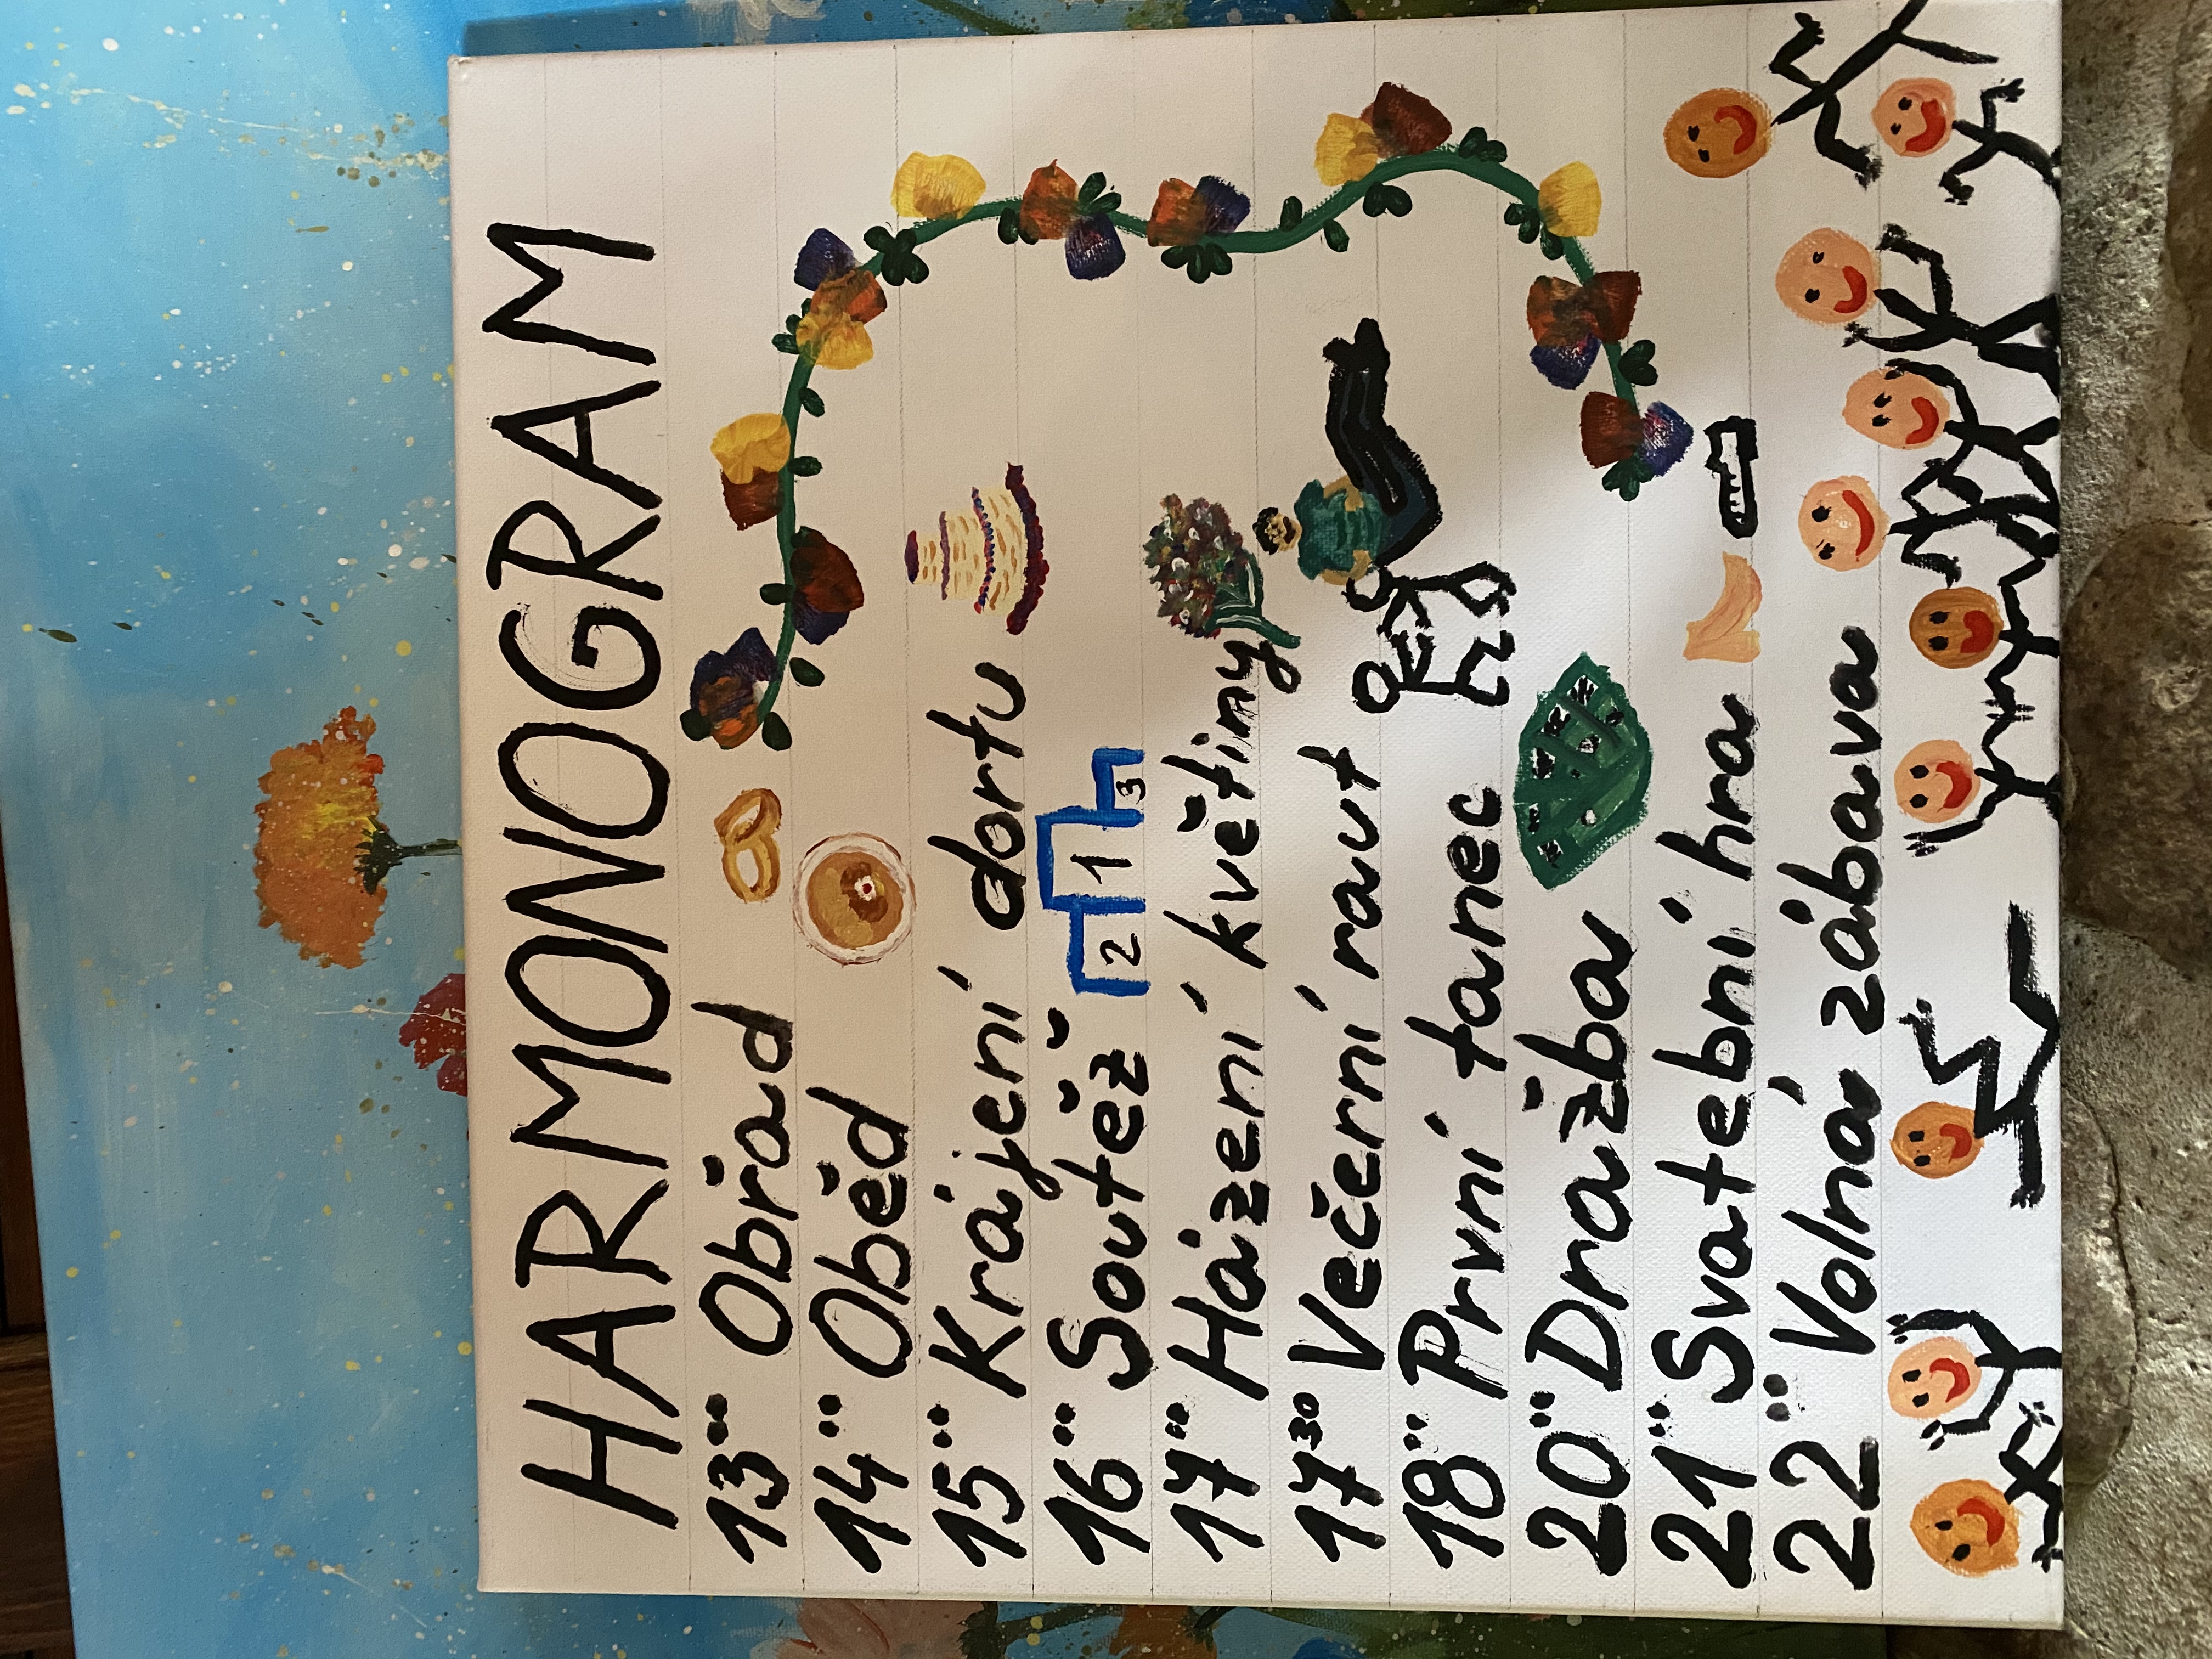 HARMONOGRAM
13⁰⁰ Obřad
14⁰⁰ Oběd
15⁰⁰ Krájení dortu
16⁰⁰ Soutěž
2 1 3
17⁰⁰ Házení květiny
17³⁰ Večerní raut
18⁰⁰ První tanec
20⁰⁰ Dražba
21⁰⁰ Svatební hra
22⁰⁰ Volná zábava